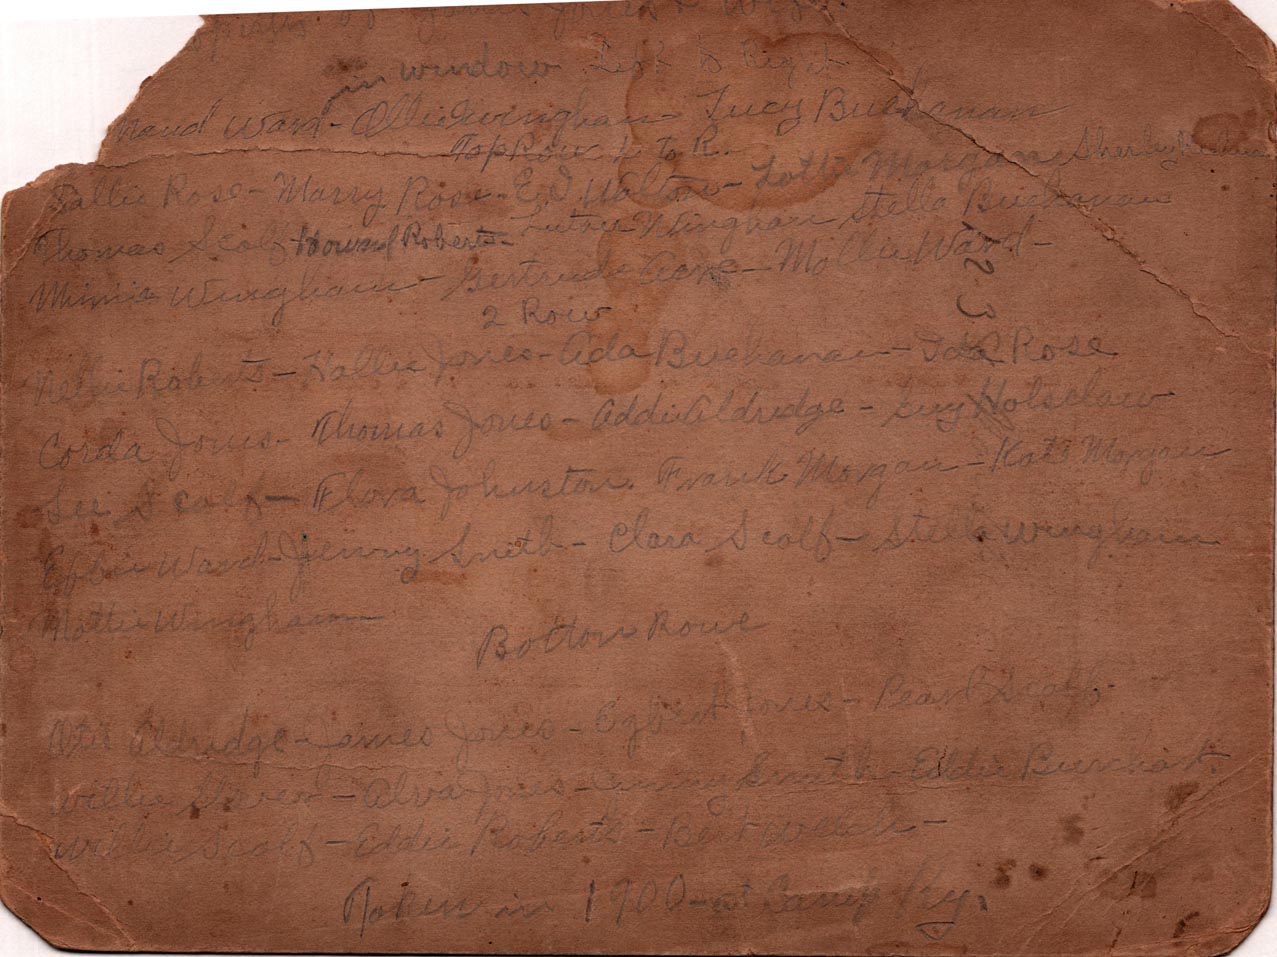 of James Jones & Wife
in window Left to Right
Maud Ward - Ollie Wingham - Lucy Buchanan
Top Row L to R.
Sallie Rose - Marry Rose - E. J. Walton - Lottie Morgan Sherley
Thomas Scalf Howard Roberts - Luther Wingham Stella Buchanan
Minnie Wingham - Gertrude - Mollie Ward -
1 2 3
2 Row
Nellie Roberts - Hallie Jones - Ada Buchanan - Ida Rose
Corda Jones - Thomas Jones - Addie Aldridge - Guy Holsclaw
Lee Scalf - Flora Johnston. Frank Morgan - Kate Morgan
Effie Ward - Jenny Smith - Clara Scalf - Stella Wingham
Mattie Wingham
Bottom Rowe
Aldridge - James Jones - Egbert Jones - Pearl Scalf -
Willie - Alva Jones - Jimmy Smith - Eddie Burchart.
Willie Scalf - Eddie Roberts - Bert Welch -
Token in 1900 - at Camp Ky.